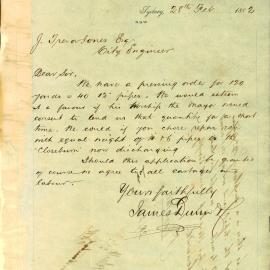 Sydney, 28th Feb 1882
J. Trevor Jones Esq
City Engineer
Dear Sir,
We have a pressing order for 120
yards = 40 12" pipes. We would esteem
it a favor if his Worship the Mayor would
consent to lend us that quantity for a short
time. We could if you chose
with equal weight of 6" pipes
"Cloncurry" now discharging
Should this application be granted
of course we agree to all cartages and
labour.
Yours faithfully
James Dunn